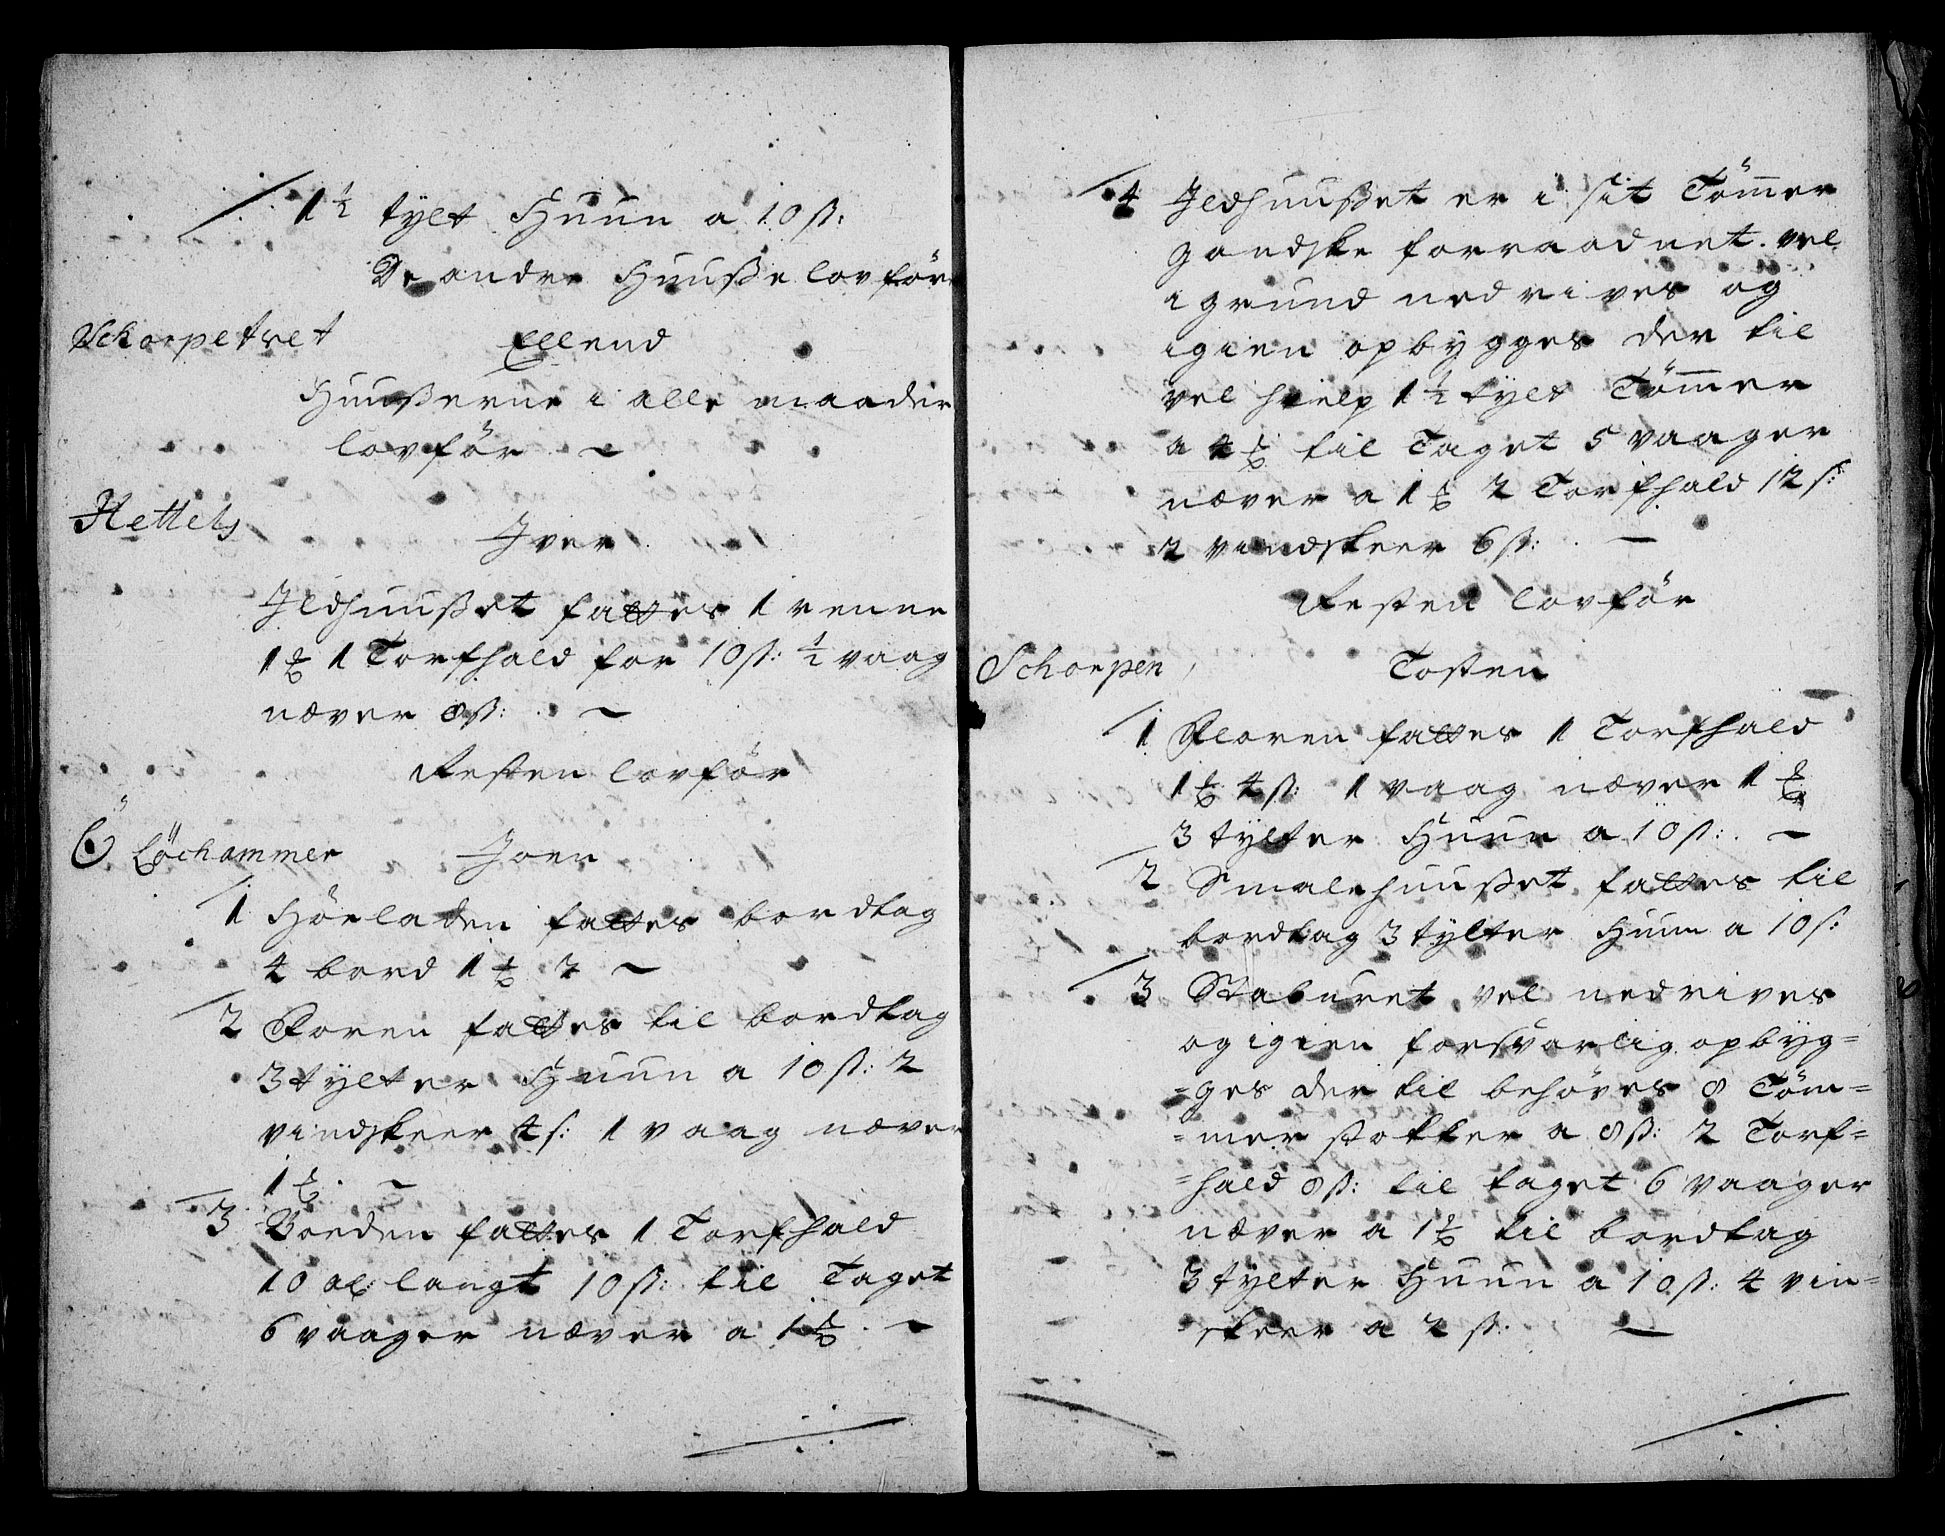 1½ tylt Huun a 10 ß:
De andre Huuße lovför
Schorpetret Ellend
Huußerne i alle maader
lovför ~
Hettels
Jver
Jldhuußet fattes 1 renne
1 ₰ 1 Torfhald for 10 ß: ½ vaag
næver 8 ß: ~
Resten lovför
Löchammer Joen
1 Höeladen fattes bordtag
4 bord 1 ₰ 2 ~
2 Floren fattes til bordtag
3 tylter Huun a 10 ß: 2
vindskeer 4 ß: 1 vaag næver
1 ₰ ~
3 Boeden fattes 1 Torfhald
10 al: langt 10 ß: til Taget
6 vaager næver a 1 ₰ ~
4 Jldhuußet er i sit Tömmer
gandske forraadnet vel
i grund nedrives og
igien opbygges der til
vel hielp 1½ tylt Tömmer
a 4 ₰ til Taget 5 vaager
næver a 1 ₰ 2 Torfhald 12 ß:
2 vindskeer 6 ß: —
Resten lovför
Schorpen Tosten
1 Floren fattes 1 Torfhald
1 ₰ 4 ß: 1 vaag næver 1 ₰
3 tylter Huun a 10 ß: ~
2 Smalehuußet fattes til
bordtag 3 tylter Huun a 10 ß:
3 Staburet vel nedrives
og igien forsvarlig opbyg=
=ges der til behöves 8 Töm=
=mer stokker a 8 ß: 2 Torf=
=hald 8 ß: til taget 6 vaager
næver a 1 ₰ til bordtag
3 tylter Huun a 10 ß: 4 vin=
skeer a 2 ß: —